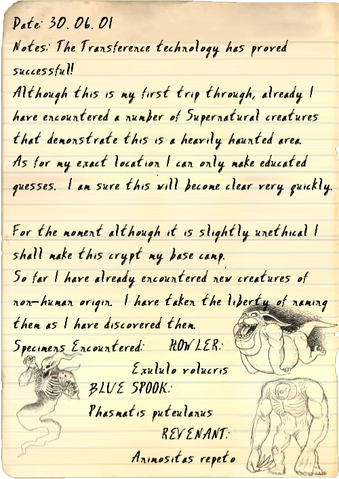 Date: 30.06.01
Notes: The Transference technology has proved
successful!
Although this is my first trip through, already I
have encountered a number of Supernatural creatures
that demonstrate this is a heavily haunted area.
As for my exact location I can only make educated
guesses. I am sure this will become clear very quickly.
For the moment although it is slightly unethical I
shall make this crypt my base camp.
So far I have already encountered new creatures of
non-human origin. I have taken the liberty of naming
them as I have discovered them.
Specimens Encountered: HOWLER:
Exululo volucris
BLUE SPOOK:
Phasmatis puteulanus
REVENANT:
Animositas repeto